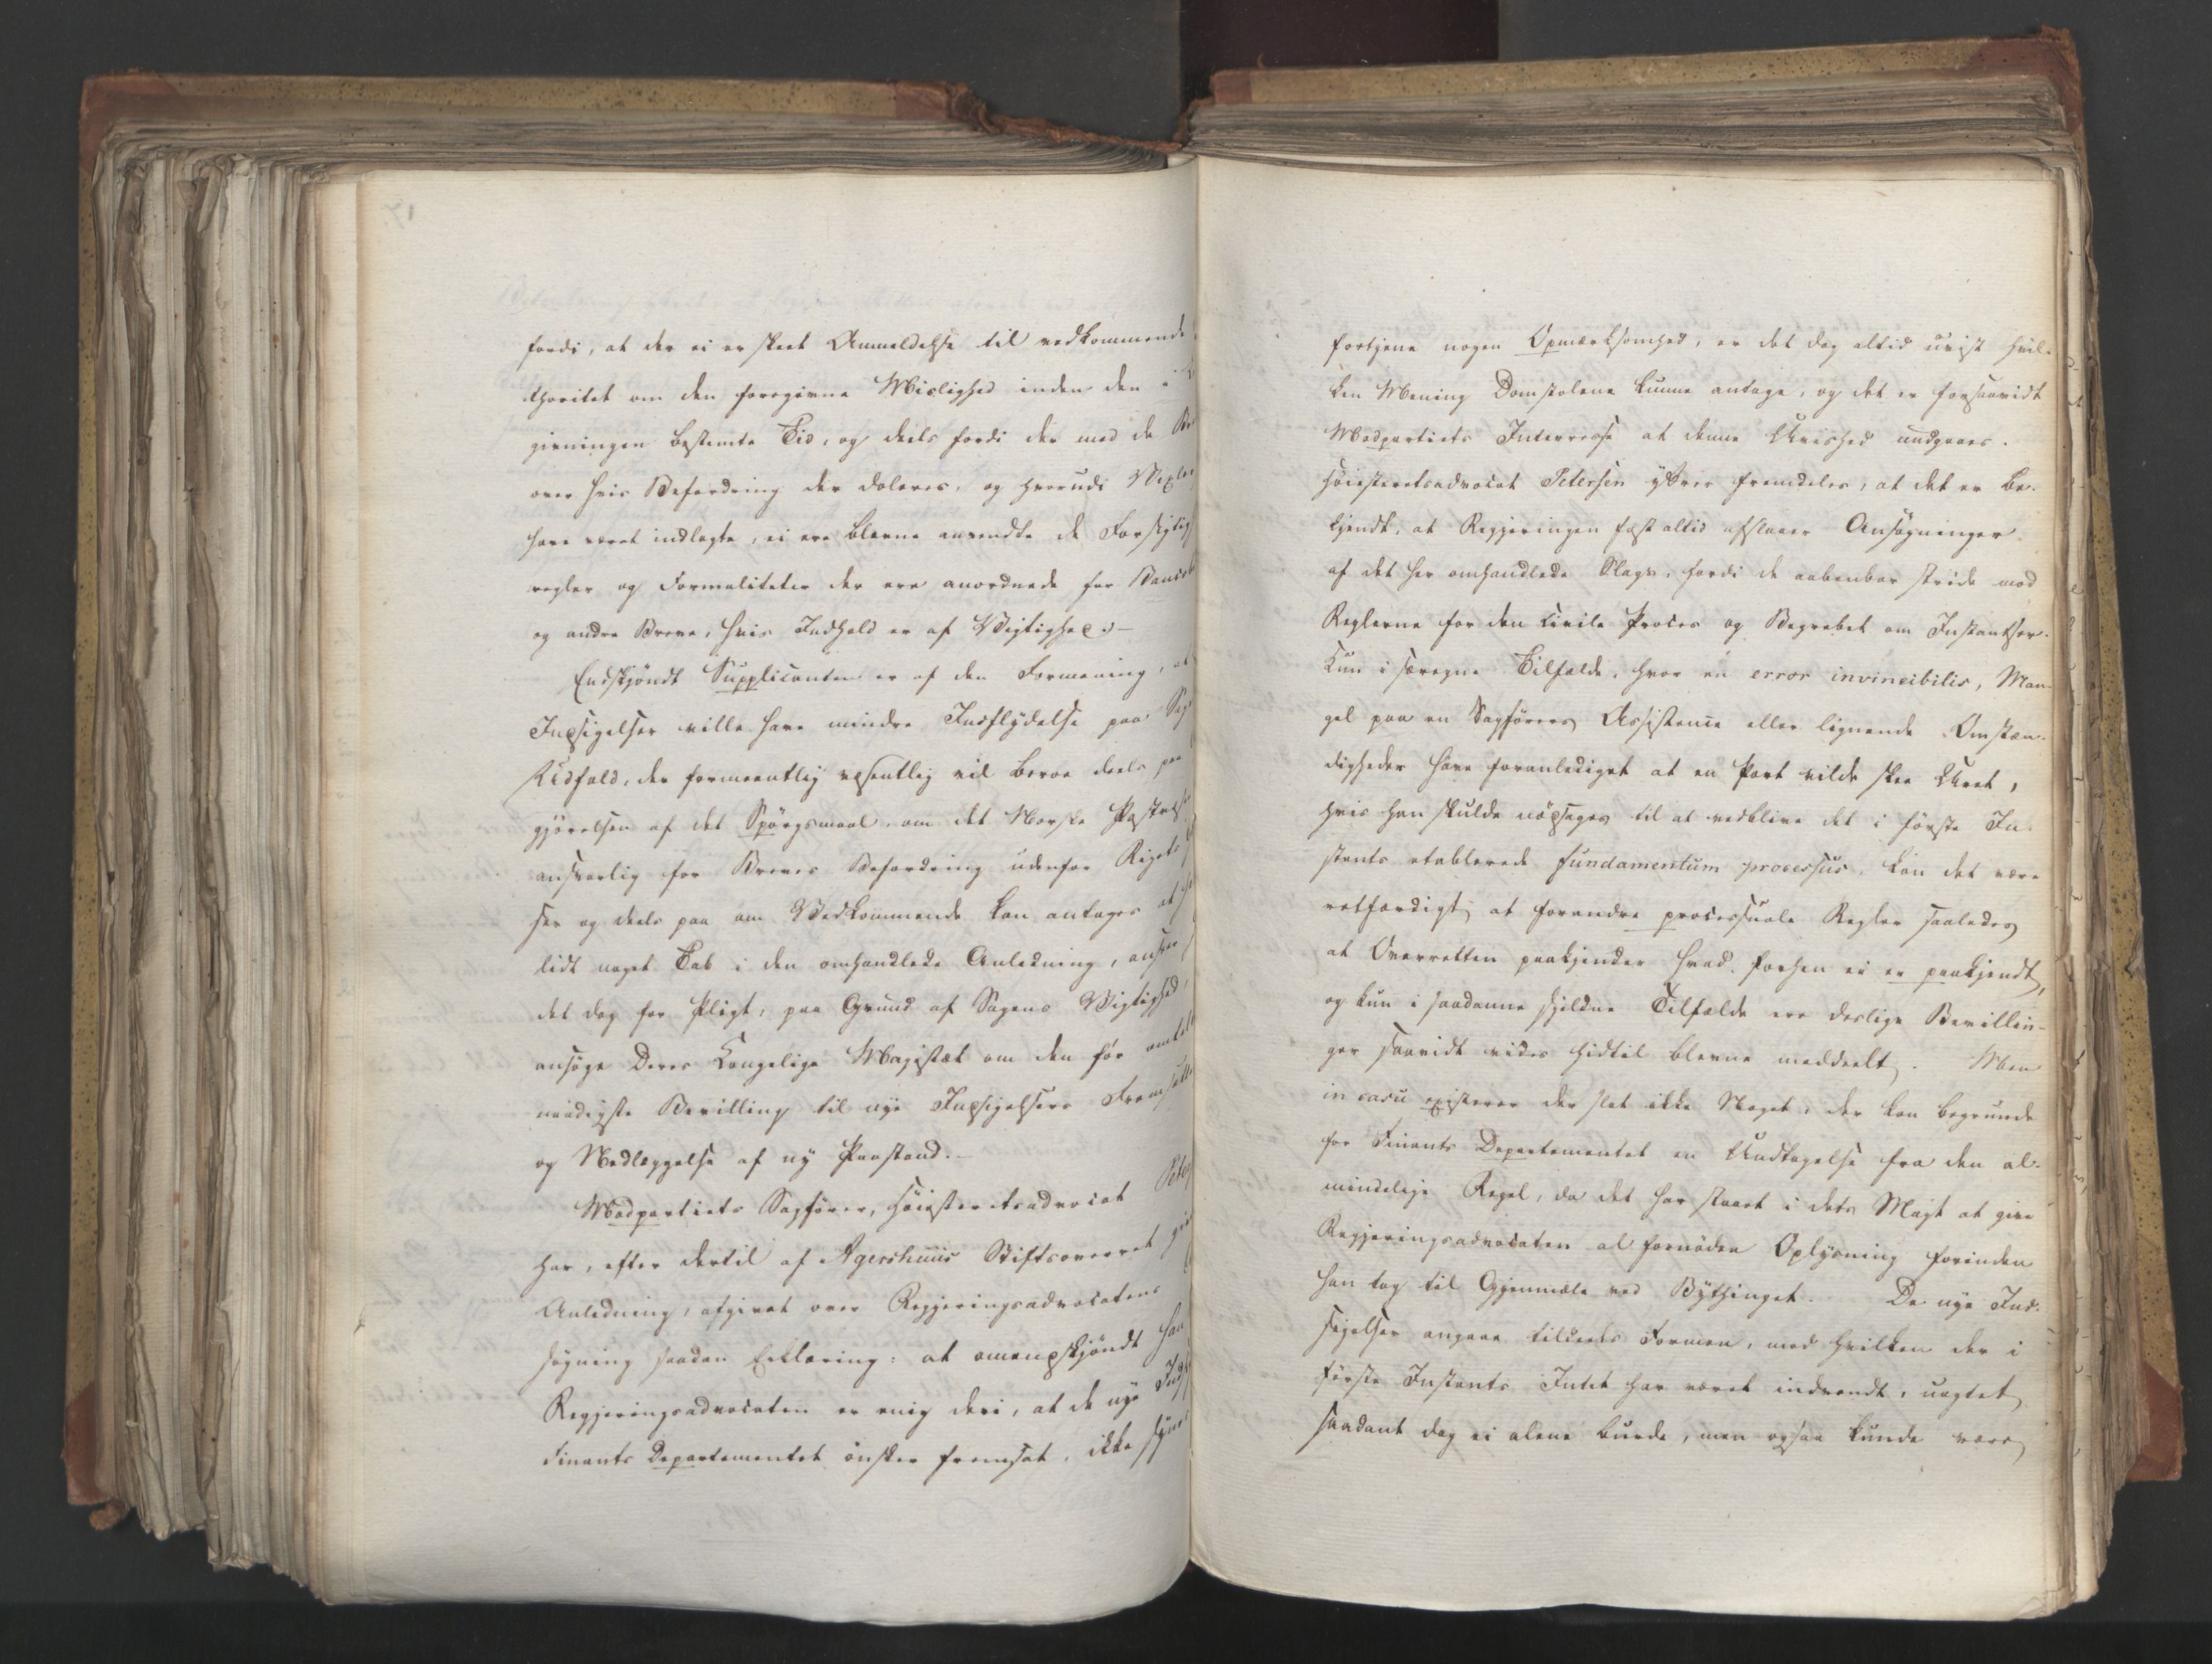 fordi, at der ei er skeet Anmeldelse til vedkommende
thoritet om den foregivne Mislighed inden den i
givningen bestemte Tid, og deels fordi der med de
over hvis Befordring der doleres, og hvorudi
have været indlagte, ei ere blevne anvendte de Forsigtig
regler og Formaliteter der ere anordnede for
og andre Breve, hvis Indhold er af Vigtighed.-
Endskjöndt Supplicanten er af den Formening, at
Indsigelser ville have mindre Indflydelse paa
Udfald, der formeentlig væsentlig vil beroe deels paa
gjörelsen af det Spörgsmaal om det Norske
ansvarlig for Breves Befordring udenfor Rigets
ser og deels paa om Vedkommende kan antages at
lidt noget Tab i den omhandlede Anledning, anseer
det dog for Pligt, paa Grund af Sagens Vigtighed,
ansöge Deres Kongelige Majestæt om den för
naadigste Bevilling til nye Indsigelsers
og Nedlæggelse af ny Paastand.-
Modpartiets Sagförer, Höiesteretsadvocat
har, efter dertil af Agershuus Stiftsoverret
Anledning, afgivet over Regjeringsadvocatens
sögning saadan Erklæring: at omendskjöndt han
Regjeringsadvocaten er enig deri, at de nye
Finants Departementet önsker fremsat, ikke synes
fortjene nogen Opmærksomhed, er det dog altid uvist hvil-
ken Mening Domstolene kunne antage, og det er forsaavidt
Modpartiets Interresse at denne Uvished undgaaes.
Höiesteretsadvocat Petersen yttrer fremdeles, at det er be-
kjendt, at Regjeringen fast altid afslaaer Ansögninger
af det her omhandlede Slags, fordi de aabenbar stride mod
Reglerne for den civile Proces og Begrebet om Instantser.
Kun i særegne Tilfælde, hvor en error invincibilis, Man-
gel paa en Sagförers Assistence eller lignende Omstæn-
digheder have foranlediget at en Part vilde skee Uret,
hvis han skulde nödsages til at vedblive det i förste In-
stants etablerede fundamentum processus, kan det være
retfærdigt at forandre processuale Regler saaledes
at Overretten paakjender hvad forhen ei er paakjendt,
og kun i saadanne sjeldne Tilfælde ere deslige Bevillin-
ger saavidt vides hidtil blevne meddeelt. Men
in casu existerer der slet ikke Noget, der kan begrunde
for Finants Departementet en Undtagelse fra den al-
mindelige Regel, da det har staaet i dets Magt at give
Regjeringsadvocaten al fornöden Oplysning forinden
han tog til Gjenmæle ved Bythinget. De nye Ind-
sigelser angaae tildeels Formen, mod hvilken der i
förste Instants Intet har været indvendt, uagtet
saadant dog ei alene burde, men ogsaa kunde være